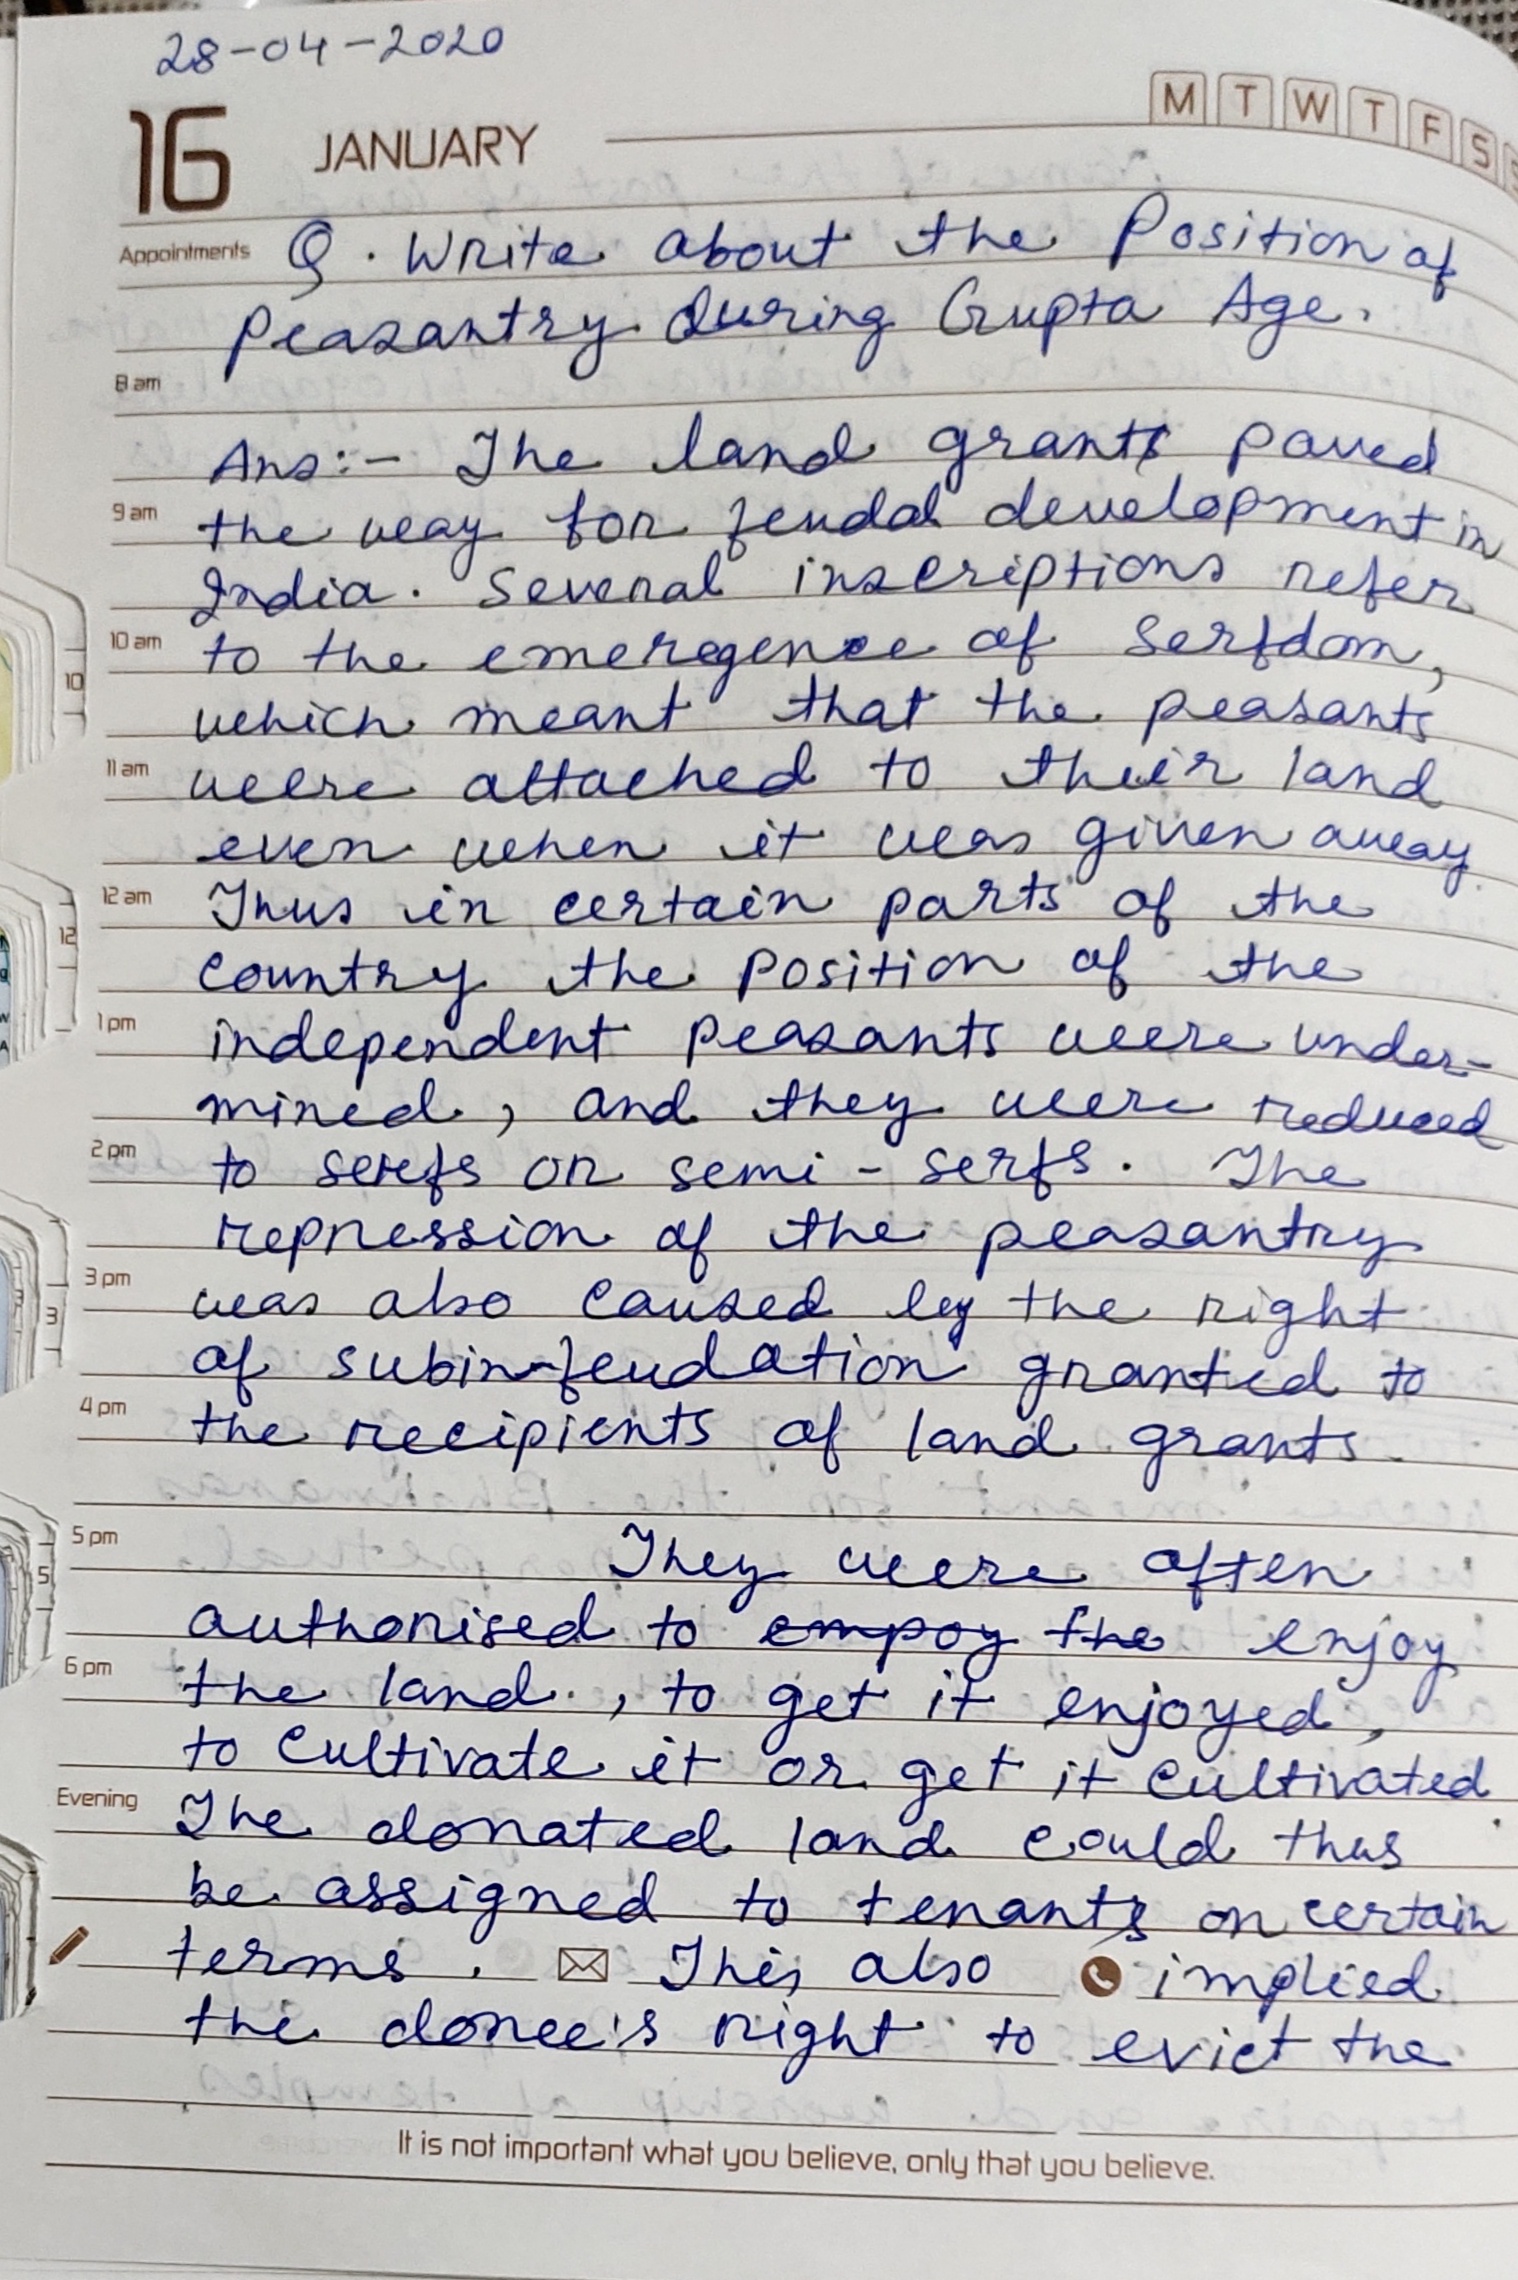 28-04-2020
M T W T F S
16 JANUARY
Appointments Q. Write about the Position of
Peasantry During Gupta Age.
8 am
Ans:- The land grants paved
9 am the way for feudal development in
India. Several inscriptions refer
10 am to the emergence of serfdom,
10
which meant that the peasants
11 am were attached to their land
even when it was given away.
12 am Thus in certain parts of the
12
country the position of the
1 pm independent peasants were under-
mined, and they were reduced
2 pm to serfs or semi-serfs. The
repression of the peasantry
3 pm was also caused by the right
3
of subin-feudation granted to
4 pm the recipients of land grants.
5 pm They were often
5
authorised to empoy the enjoy
6 pm the land, to get it enjoyed,
to cultivate it or get it cultivated.
Evening The donated land could thus
be assigned to tenants on certain
terms. This also implied
the donee's right to evict the
It is not important what you believe, only that you believe.